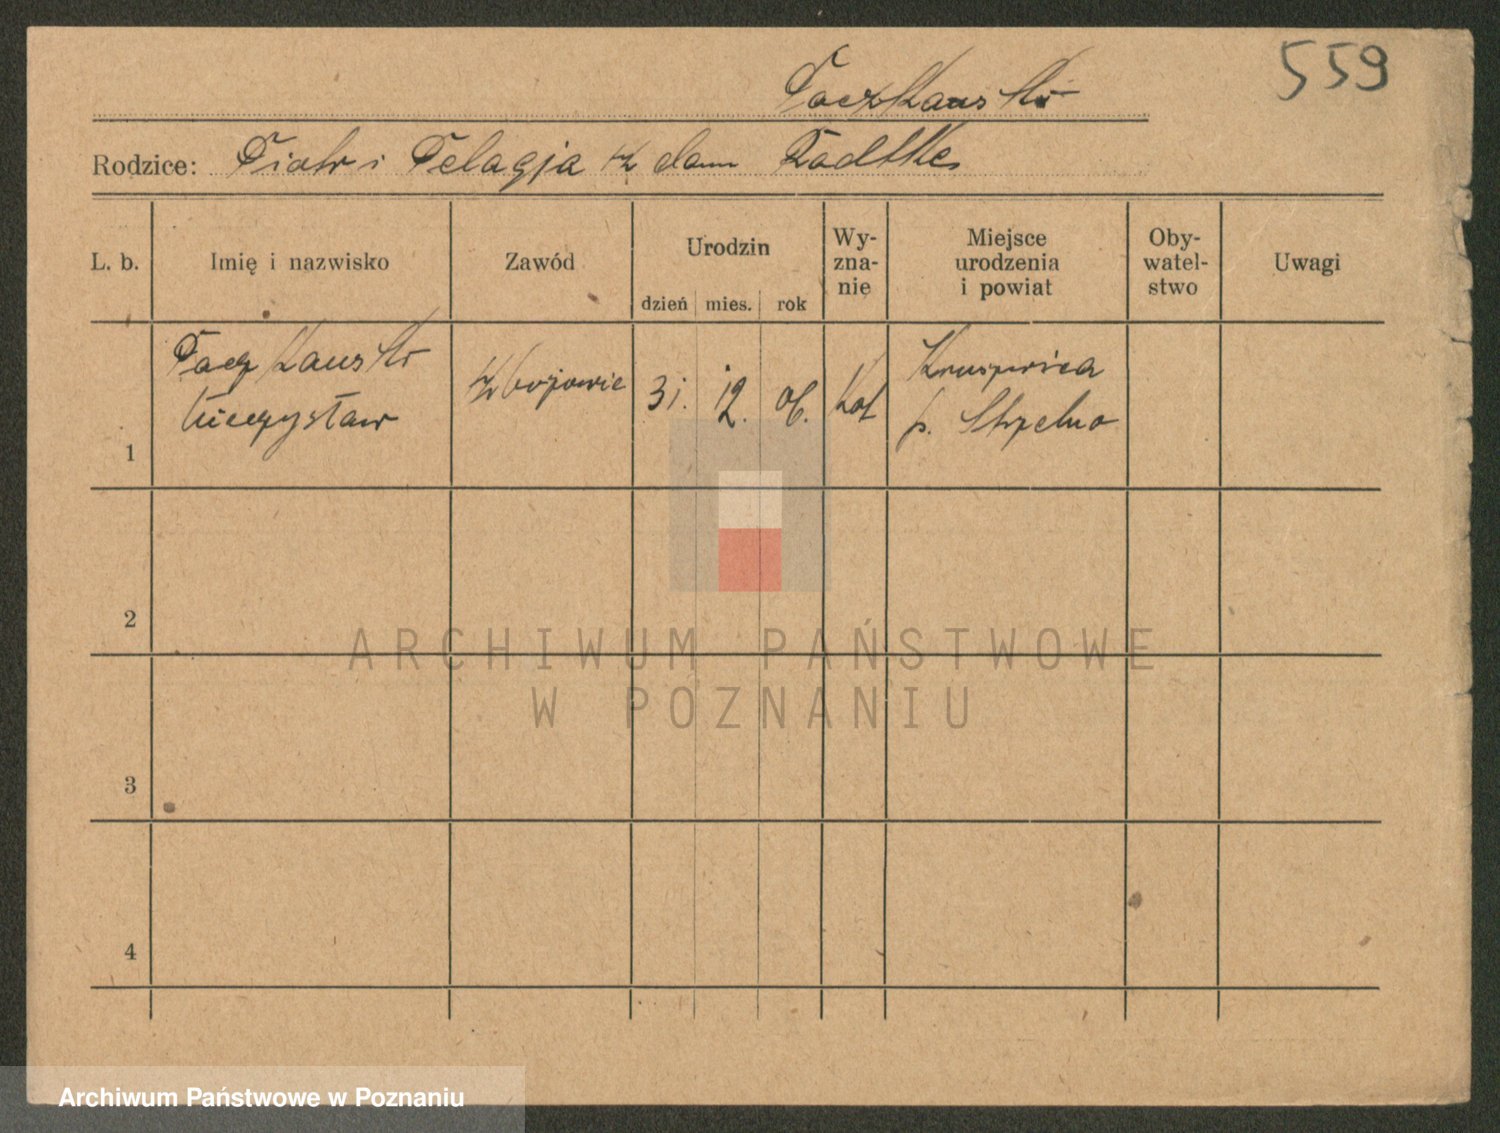 559
Paczkowski
Rodzice: Piotr i Pelagja z dom Radtke
L. b. Imię i nazwisko Zawód Urodzin dzień mies. rok Wy-zna-nie Miejsce urodzenia i powiat Oby-watel-stwo Uwagi
1 Paczkowski Mieczysław 31. 12. 06. Kat Kruszwica p. Strzelno
2
3
4
ARCHIWUM PAŃSTWOWE
W POZNANIU
Archiwum Państwowe w Poznaniu